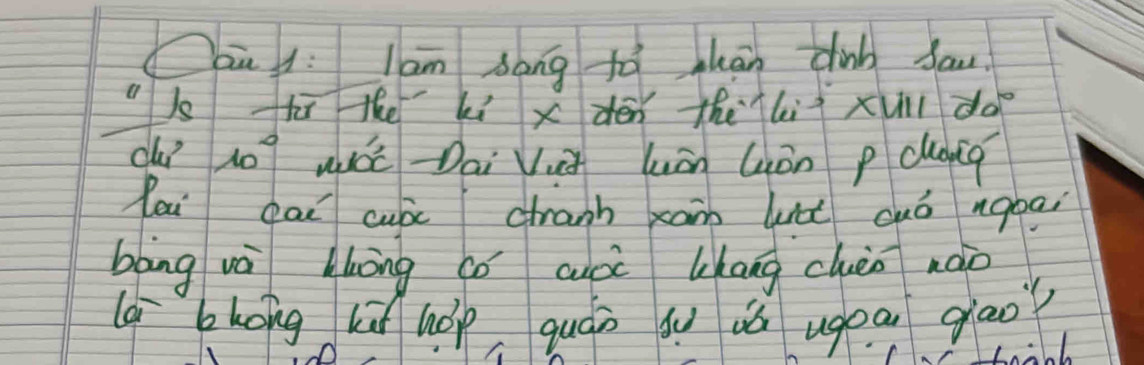 Câu 1: làm sáng tỏ nhận định sau.
"ls từ thế kỉ X đến thế kỉ XVIII do
chỉ rõ nước Đại Việt luôn luôn p chống
lại các cuộc ctranh xâm lược của ngoại
bang và không có cuộc kháng chiến nào
là không kết hợp quân sự với ngoại giao"